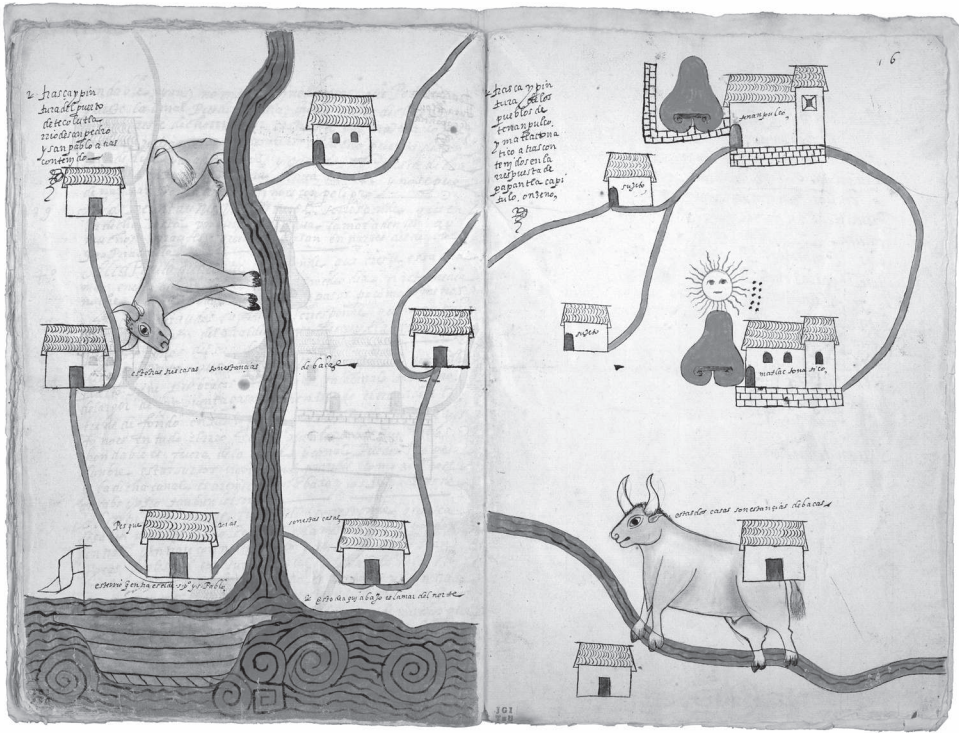 trasca y pin
tura del puerto
de tecolutla
rrio de san pedro
y san pablo atras
contenido
estenas suscasas son estancias de bacas
Pesque rias son estas casas
este rrio
esto de aqui abajo es la mar del norte
16
trasca y pin
tura de los
pueblos de
tenanpulco,
y matlactona
tico atras con
tenidos en la
rrespuesta de
papantla capi
tulo, onzeno,
tenanpulco,
sujeto
sujeto
matlactonatico,
estas dos casas son estançias de bacas